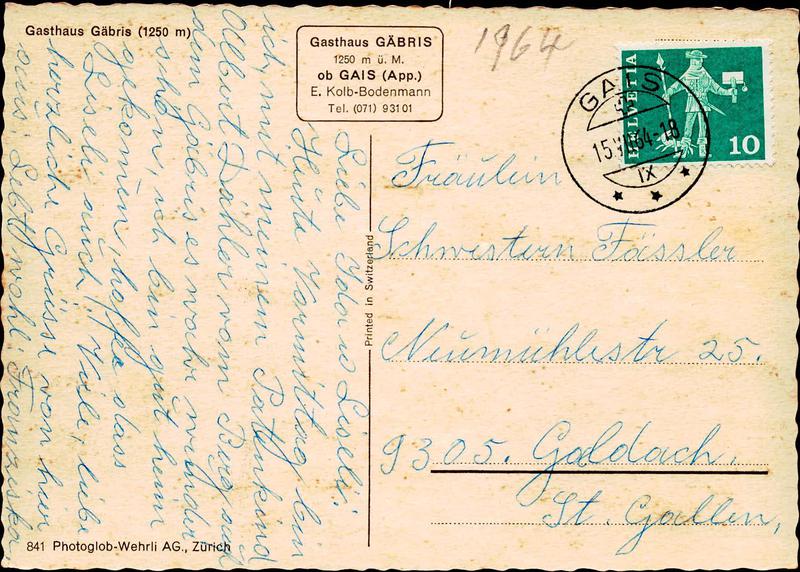 Gasthaus Gäbris (1250 m)
Gasthaus GÄBRIS
1250 m ü. M.
ob GAIS (App.)
E. Kolb-Bodenmann
Tel. (071) 931 01
1964
HELVETIA
10
GAIS
15.VII.64-18
IX
Liebe Ida u Liseli.
Heute Vormittag bin
ich, mit meinem Patenkind
Albert Dähler vom Berg auf
dem Gäbris es wahr wunder
schön, ich bin gut heim
gekomen, hoffe dass
Liseli auch, Viele, liebe
herzliche Grüsse von hier
aus. Lebt wohl Franziska
Printed in Switzerland
Fräulein
Schwestern Fässler
Neumühlestr 25.
9305. Goldach.
St. Gallen,
841 Photoglob-Wehrli AG., Zürich